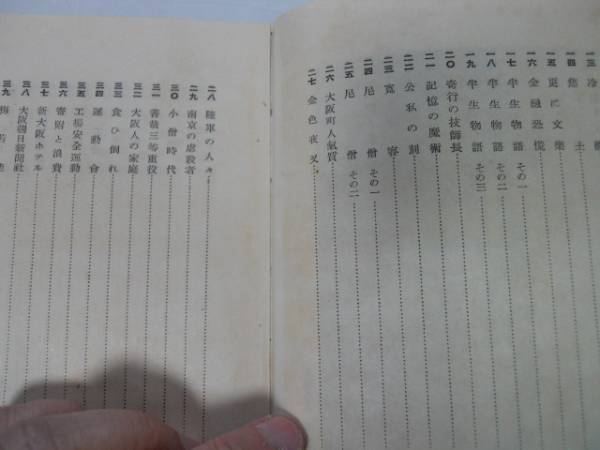 一三 冷
一四 焦土
一五 更に文楽
一六 金融恐慌
一七 半生物語 その一
一八 半生物語 その二
一九 半生物語 その三
二〇 奇行の技師長
二一 記憶の魔術
二二 公私の別
二三 寛容
二四 尼僧 その一
二五 尼僧 その二
二六 大阪町人気質
二七 金色夜叉
二八 陸軍の人々
二九 南京の虐殺者
三〇 小僧時代
三一 善哉三等重役
三二 大阪人の家庭
三三 食ひ倒れ
三四 運動会
三五 工場安全運動
三六 寄附と浪費
三七 新大阪ホテル
三八 大阪朝日新聞社
三九